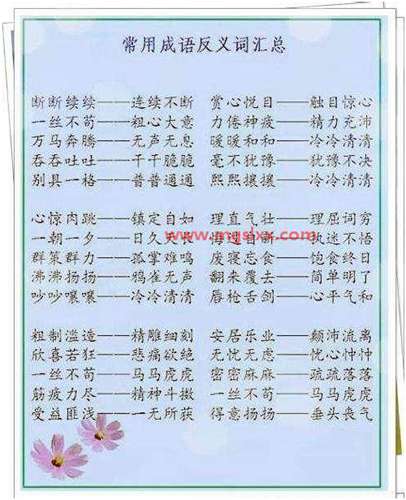 常用成语反义词汇总
断断续续——连续不断 赏心悦目——触目惊心
一丝不苟——粗心大意 力倦神疲——精力充沛
万马奔腾——无声无息 暖暖和和——冷冷清清
吞吞吐吐——干干脆脆 毫不犹豫——犹豫不决
别具一格——普普通通 熙熙攘攘——冷冷清清
心惊肉跳——镇定自如 理直气壮——理屈词穷
一朝一夕——日久天长 悔过自新——执迷不悟
www.mgslxx.com
群策群力——孤掌难鸣 废寝忘食——饱食终日
沸沸扬扬——鸦雀无声 翻来覆去——简单明了
吵吵嚷嚷——冷冷清清 唇枪舌剑——心平气和
粗制滥造——精雕细刻 安居乐业——颠沛流离
欣喜若狂——悲痛欲绝 无忧无虑——忧心忡忡
一丝不苟——马马虎虎 密密麻麻——疏疏落落
筋疲力尽——精神斗擞 一丝不苟——马马虎虎
受益匪浅——一无所获 得意扬扬——垂头丧气